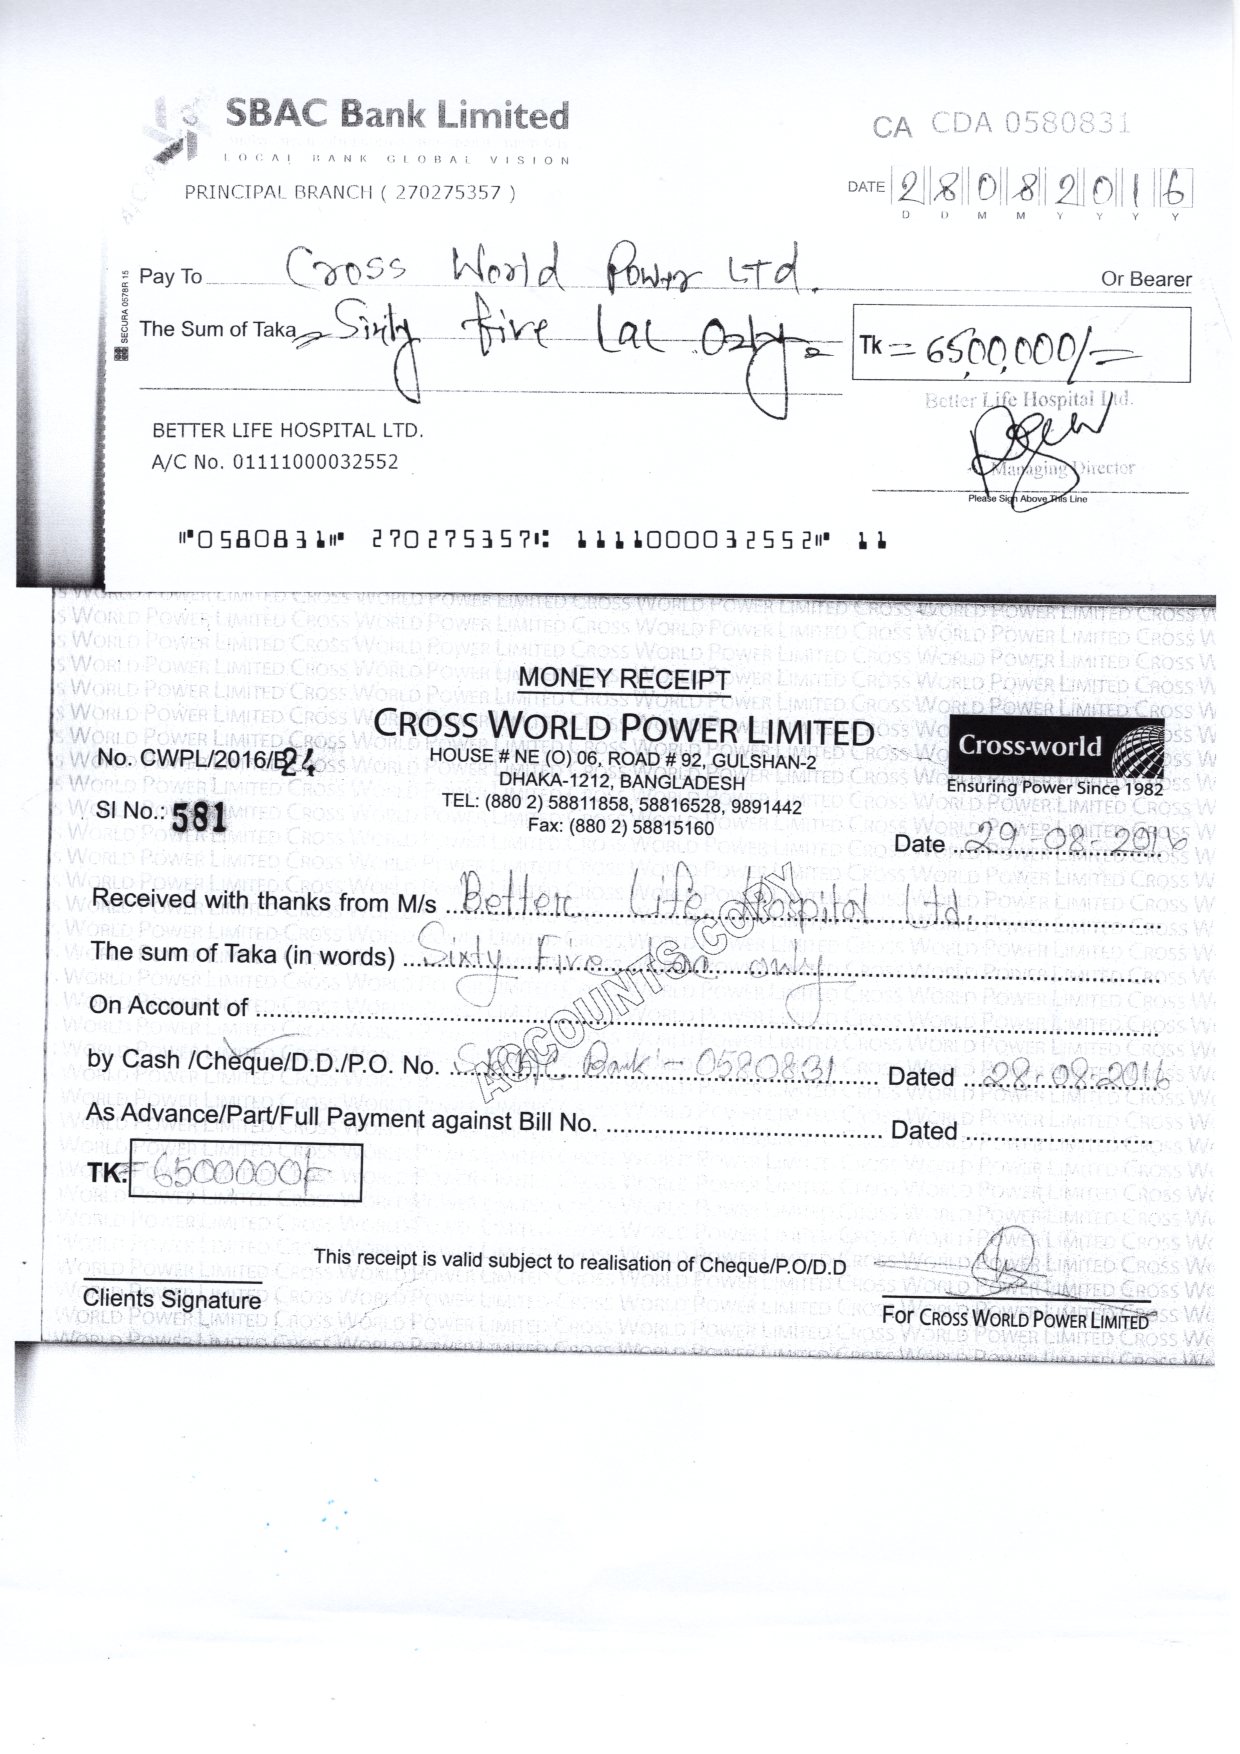 SBAC Bank Limited
LOCAL BANK GLOBAL VISION
PRINCIPAL BRANCH ( 270275357 )
CA CDA 0580831
DATE 28082016
D D M M Y Y Y Y
SECURA 0578R 15
Pay To Cross World Power LTd. Or Bearer
The Sum of Taka = Sixty five Lac Only =
Tk = 6500,000/=
Better Life Hospital Ltd.
BETTER LIFE HOSPITAL LTD.
A/C No. 01111000032552
Managing Director
Please Sign Above This Line
⑈0580831⑈ 270275357⑆ 1111000032552⑈ 11
MONEY RECEIPT
CROSS WORLD POWER LIMITED
HOUSE # NE (O) 06, ROAD # 92, GULSHAN-2
DHAKA-1212, BANGLADESH
TEL: (880 2) 58811858, 58816528, 9891442
Fax: (880 2) 58815160
Cross-world
Ensuring Power Since 1982
No. CWPL/2016/B24
Sl No.: 581
Date 29-08-2016
Received with thanks from M/s Better Life Hospital Ltd.
The sum of Taka (in words) Sixty Five Lac only
On Account of
by Cash /Cheque/D.D./P.O. No. SBAC Bank - 0580831 Dated 28-08-2016
As Advance/Part/Full Payment against Bill No. Dated
TK. = 6500000/=
ACCOUNTS COPY
This receipt is valid subject to realisation of Cheque/P.O/D.D
Clients Signature
For CROSS WORLD POWER LIMITED